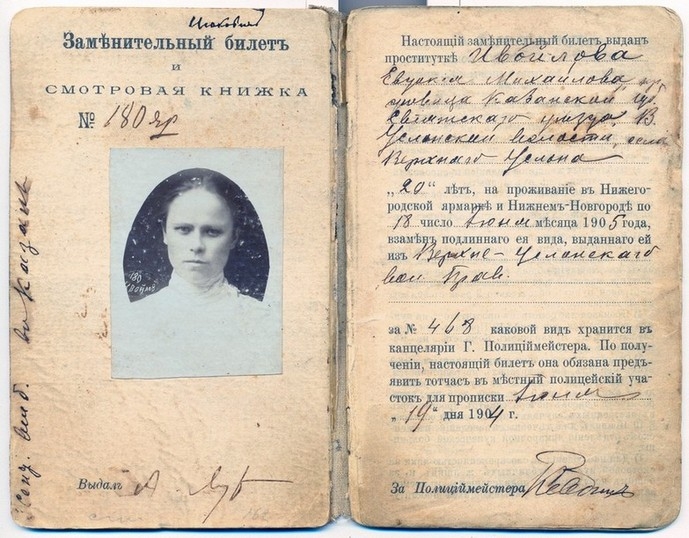 Замѣнительный билетъ
и
СМОТРОВАЯ КНИЖКА
№ 180 яр
180
Выдалъ А.
Настоящій замѣнительный билетъ выданъ
проституткѣ Ивойлова
Евдокія Михайлова кр
Казанской губ.
Свіяжскаго уѣзда, В.
Услонской волости, села
Верхняго Услона
„20“ лѣтъ, на проживаніе въ Нижего-
родской ярмаркѣ и Нижнемъ-Новгородѣ по
18 число Іюня мѣсяца 1905 года,
взамѣнъ подлиннаго ея вида, выданнаго ей
изъ Верхне-Услонскаго
вол. Прав.
за № 468 каковой видъ хранится въ
канцеляріи Г. Полиціймейстера. По полу-
ченіи, настоящій билетъ она обязана предъ-
явить тотчасъ въ мѣстный полицейскій уча-
стокъ для прописки Іюня
„19“ дня 1904 г.
За Полиціймейстера